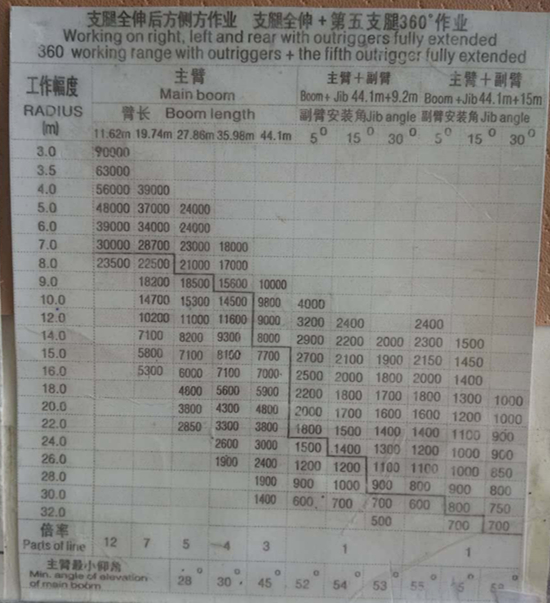 支腿全伸后方侧方作业 支腿全伸+第五支腿360°作业
Working on right, left and rear with outriggers fully extended
360 working range with outriggers + the fifth outrigger fully extended
工作幅度 主臂 主臂+副臂 主臂+副臂
RADIUS Main boom Boom+ Jib 44.1m+9.2m Boom+Jib 44.1m+15m
(m) 臂长 Boom length 副臂安装角Jib angle 副臂安装角Jib angle
11.62m 19.74m 27.86m 35.98m 44.1m 5° 15° 30° 5° 15° 30°
3.0 90000
3.5 63000
4.0 56000 39000
5.0 48000 37000 24000
6.0 39000 34000 24000
7.0 30000 28700 23000 18000
8.0 23500 22500 21000 17000
9.0 18200 18500 15600 10000
10.0 14700 15300 14500 9800 4000
12.0 10200 11000 11600 9000 3200 2400 2400
14.0 7100 8200 9300 8000 2900 2200 2000 2300 1500
15.0 5800 7100 8150 7700 2700 2100 1900 2150 1450
16.0 5300 6000 7100 7000 2500 2000 1800 2000 1400
18.0 4600 5600 5900 2200 1800 1700 1800 1300 1000
20.0 3800 4300 4800 2000 1700 1600 1600 1200 1000
22.0 2850 3300 3800 1800 1500 1400 1400 1100 900
24.0 2600 3000 1500 1400 1300 1200 1000 900
26.0 1900 2400 1200 1200 1100 1100 1000 850
28.0 1900 900 1000 900 800 900 800
30.0 1400 600 700 700 600 800 750
32.0 500 700 700
倍率
Parts of line 12 7 5 4 3 1 1
主臂最小仰角
Min. angle of elevation 28° 30° 45° 52° 54° 53° 55°
of main boom